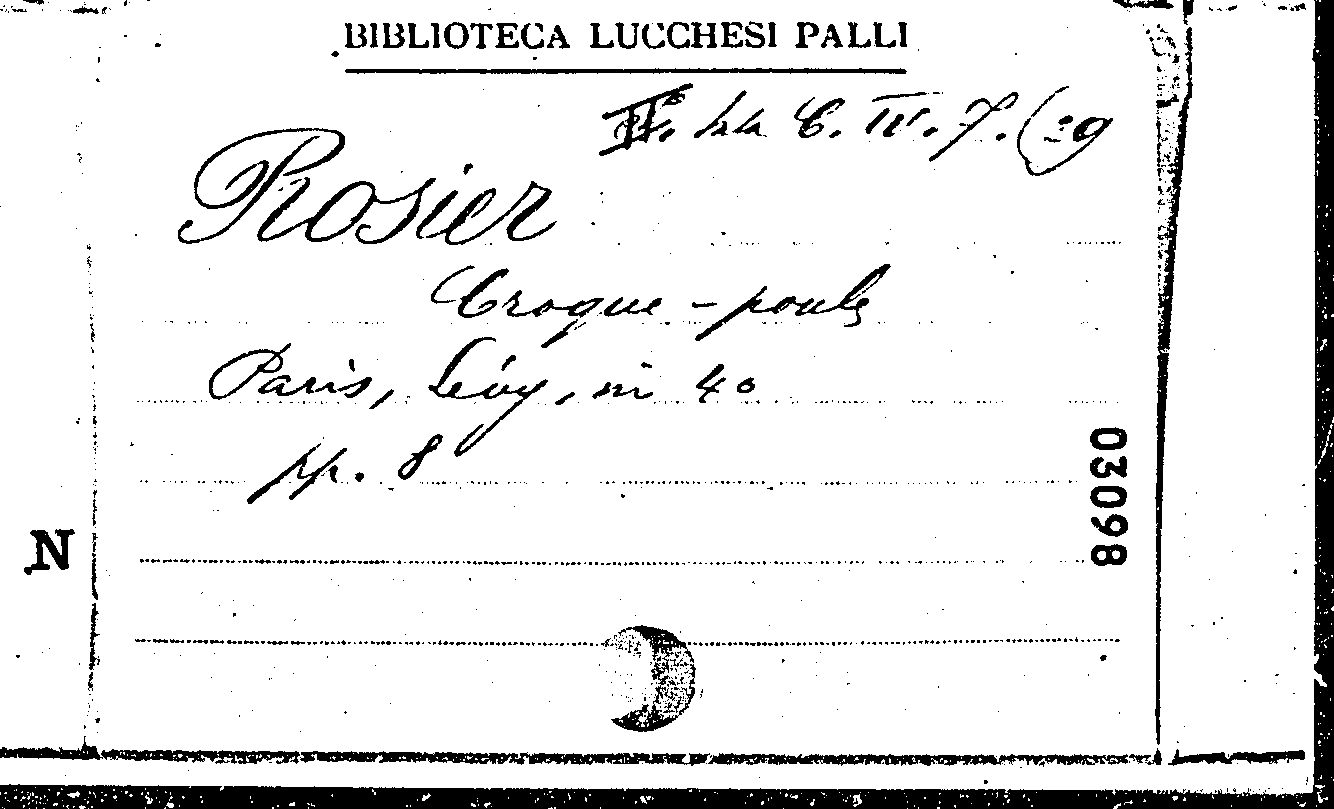 BIBLIOTECA LUCCHESI PALLI
C. IV. 7. (39
Rosier
Croque-poule
Paris, Lévy, in 40
pp. 8
03098
N